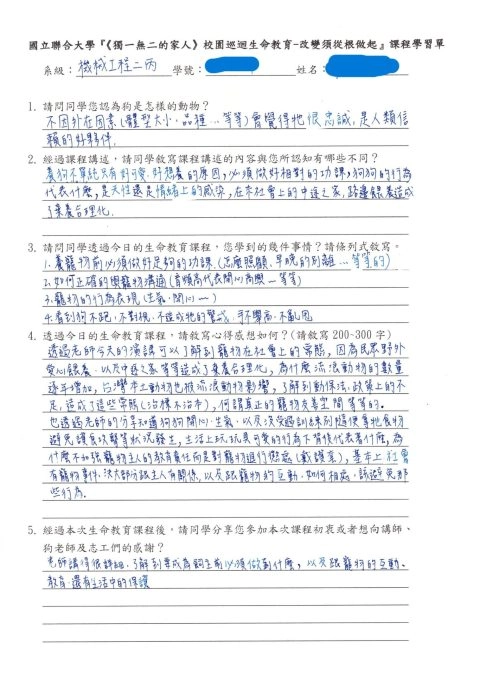 國立聯合大學『《獨一無二的家人》校園巡迴生命教育-改變須從根做起』課程學習單
系級：機械工程二丙 學號： 姓名：
1. 請問同學您認為狗是怎樣的動物？
不因外在因素(體型大小、品種…等等)會覺得牠很忠誠，是人類信
賴的好夥伴.
2. 經過課程講述，請同學敘寫課程講述的內容與您所認知有哪些不同？
養狗不單純只有好可愛.好想養的原因,必須做好相對的功課,狗狗的行為
代表什麼,是天性還是情緒上的感染,在本社會上的中途之家.路邊餵養造成
了棄養合理化.
3. 請問同學透過今日的生命教育課程，您學到的幾件事情？請條列式敘寫。
1.養寵物前必須做好足夠的功課(怎麼照顧、早晚的別離…等等的)
2.如何正確的與寵物溝通(音頻高代表開心高興…等等)
3.寵物的行為表現(生氣、開心…)
4.看到狗不跑、不對視、不造成牠的警戒、手不舉高、不亂甩
4. 透過今日的生命教育課程，請敘寫心得感想如何？(請敘寫 200~300 字)
透過老師今天的演講可以了解到寵物在社會上的常態，因為民眾野外
愛心餵養、以及中途之家等等造成了棄養合理化，為什麼流浪動物的數量
逐年增加，台灣本土動物也被流浪動物影響，了解到動保法、政策上的不
足，造成了這些常態(治標不治本)，何謂真正的寵物友善空間等等的。
也透過老師的分享知道狗狗開心、生氣、以及沒受過訓練別隨便拿牠食物
避免護食攻擊等狀況發生，生活上玩玩具可愛的行為不習慣代表著什麼，為
什麼不加強寵物主人的教育責任而是對寵物進行懲處(戴嘴套)，基本上社會
有寵物事件.決大部分跟主人有關係，以及跟寵物的互動、如何相處、該避免那
些行為.
5. 經過本次生命教育課程後，請同學分享您參加本次課程初衷或者想向講師、
狗老師及志工們的感謝？
老師講得很詳細.了解到要成為飼主前必須做到什麼，以及跟寵物的互動、
教育.還有生活中的保護